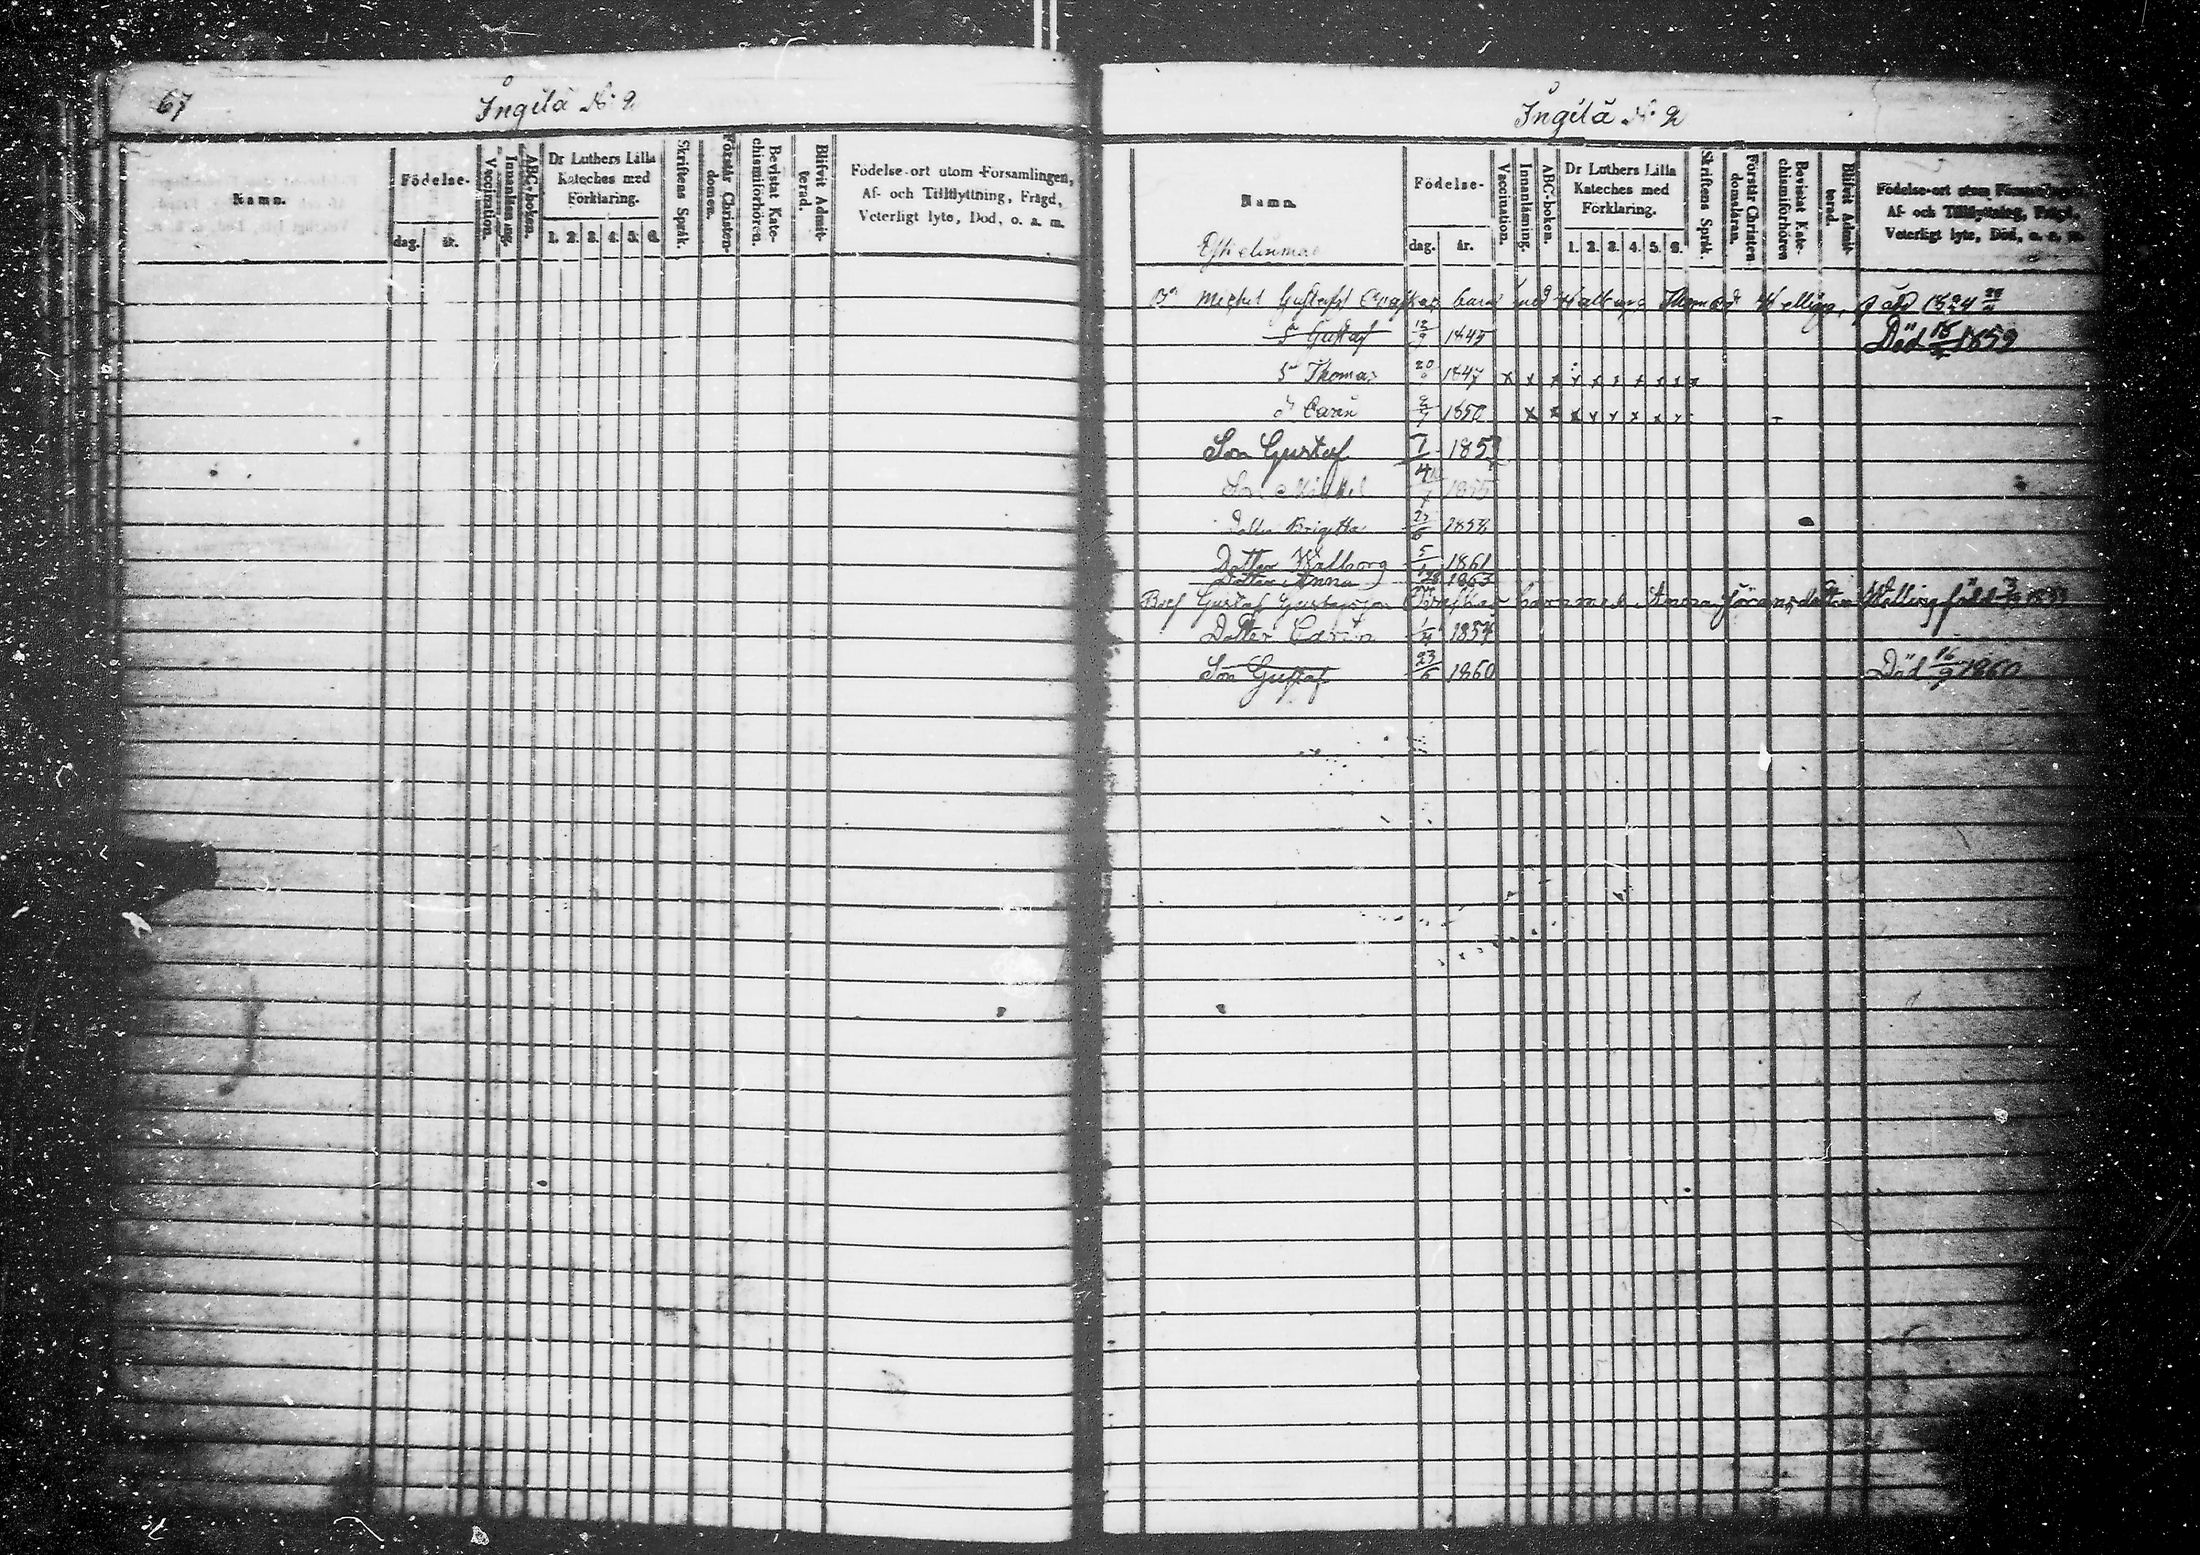 67 Ingilä N:o 2
Namn.
Födelse-
dag. år.
Vaccination.
Innanläsning.
ABC-boken.
Dr Luthers Lilla
Kateches med
Förklaring.
1. 2. 3. 4. 5. 6.
Skriftens Språk.
Förstår Christen-
domen.
Bevistat Kate-
chismiförhören.
Blifvit Admit-
terad.
Födelse-ort utom Församlingen,
Af- och Tillflyttning, Frägd,
Veterligt lyte, Död, o. a. m.
Ingilä N:o 2
Namn.
Födelse-
dag. år.
Vaccination.
Innanläsning.
ABC-boken.
Dr Luthers Lilla
Kateches med
Förklaring.
1. 2. 3. 4. 5. 6.
Skriftens Språk.
Förstår Christen-
domsläran.
Bevistat Kate-
chismiförhören
Blifvit Admit-
terad.
Födelse-ort utom
Af- och Tillflyttning, Frägd,
Veterligt lyte, Död, o. a. m.
Michel Gustafss barn med Walborg Thomasd 1824
S Gustaf 1845 Död 1859
S Thomas 1847 x x x x x x x x x x
D Carin 1850 x x x x x x x x
Son Gustaf 1853
Son Mikkel 1855
Dotter Brigitta
Dotter Walborg 5/1 1861
Dotter Anna 1863
Gustaf Gustafsson barn med Anna Göransdotter född
Dotter Carin 1857
Son Gustaf 23/6 1860 Död 16/9 1860